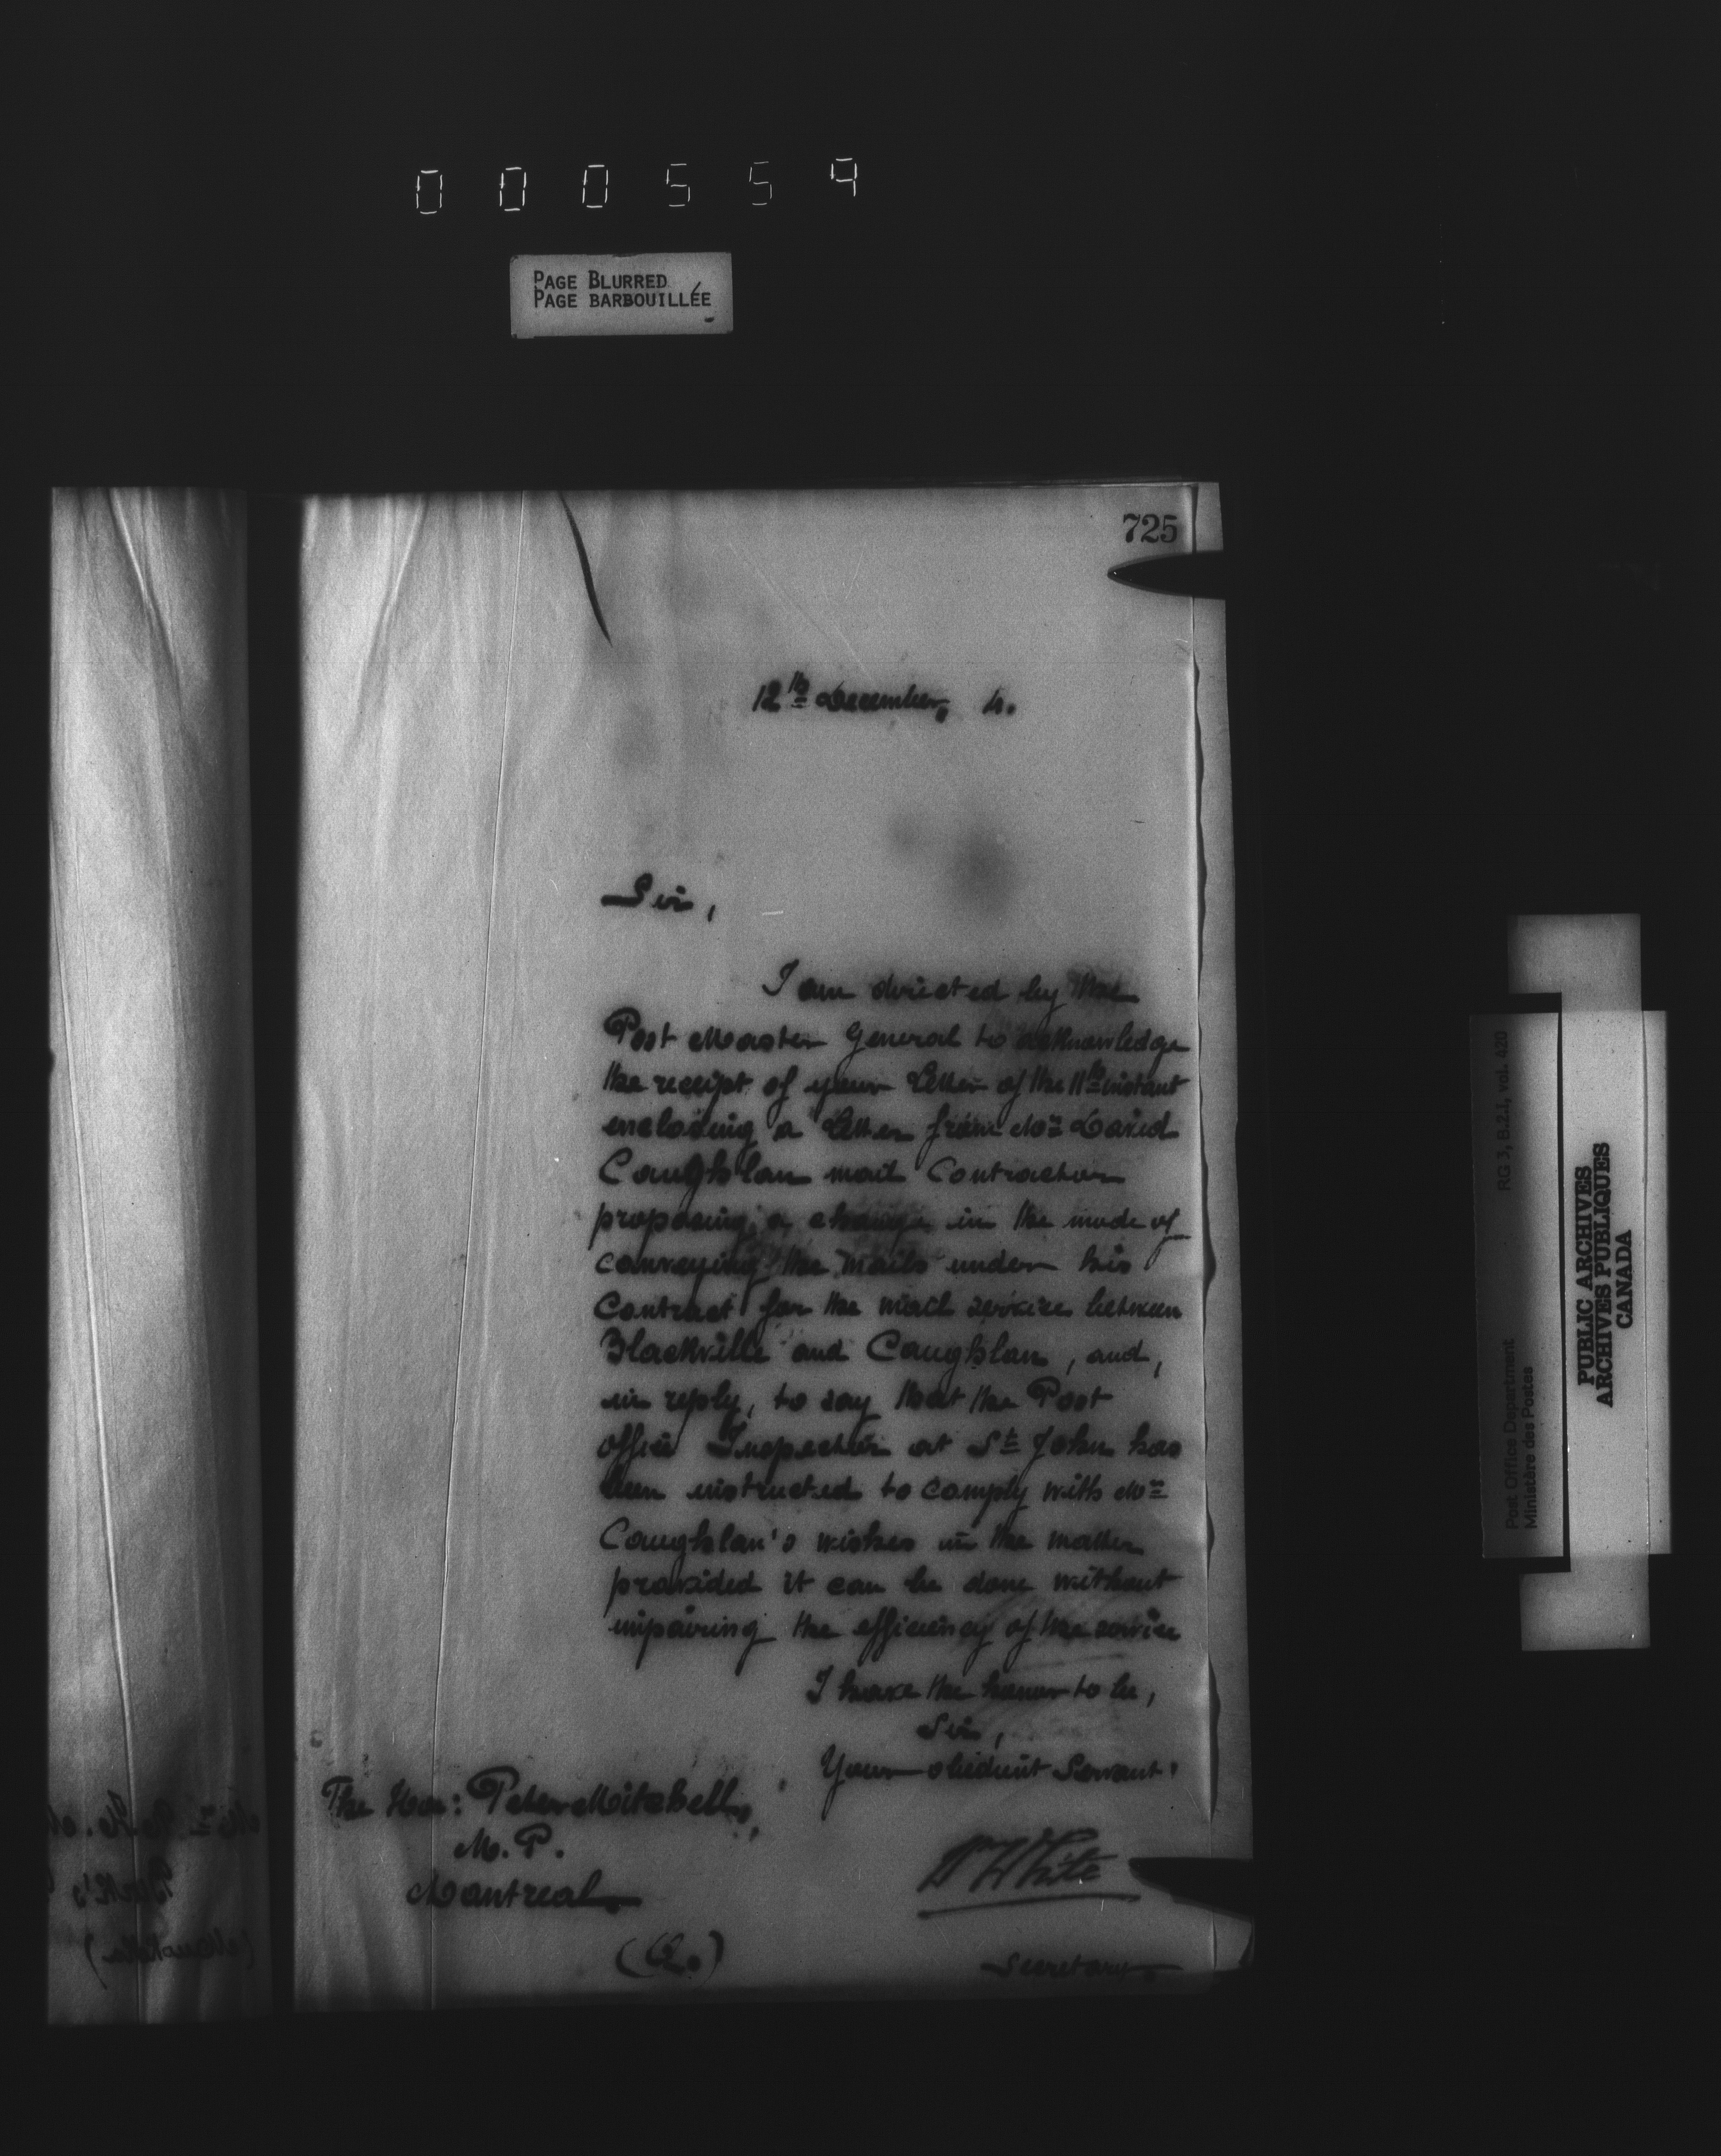 000559
PAGE BLURRED
PAGE BARBOUILLÉE
725
12th December, 4.
Sir,
I am directed by the
Post Master General to acknowledge
the receipt of your letter of the 11th instant
enclosing a letter from Mr David
Coughlan mail Contractor
proposing a change in the mode of
conveying the mails under his
Contract for the mail service between
Blackville and Coughlan, and,
in reply, to say that the Post
office Inspector at St John has
been instructed to comply with Mr
Coughlan's wishes in the matter
provided it can be done without
impairing the efficiency of the service
I have the honor to be,
Sir,
Your obedient Servant,
The Hon: Peter Mitchell,
M.P.
Montreal
(Q.)
W White
Secretary.
RG 3, B.2.1, vol. 420
Post Office Department
Ministère des Postes
PUBLIC ARCHIVES
ARCHIVES PUBLIQUES
CANADA